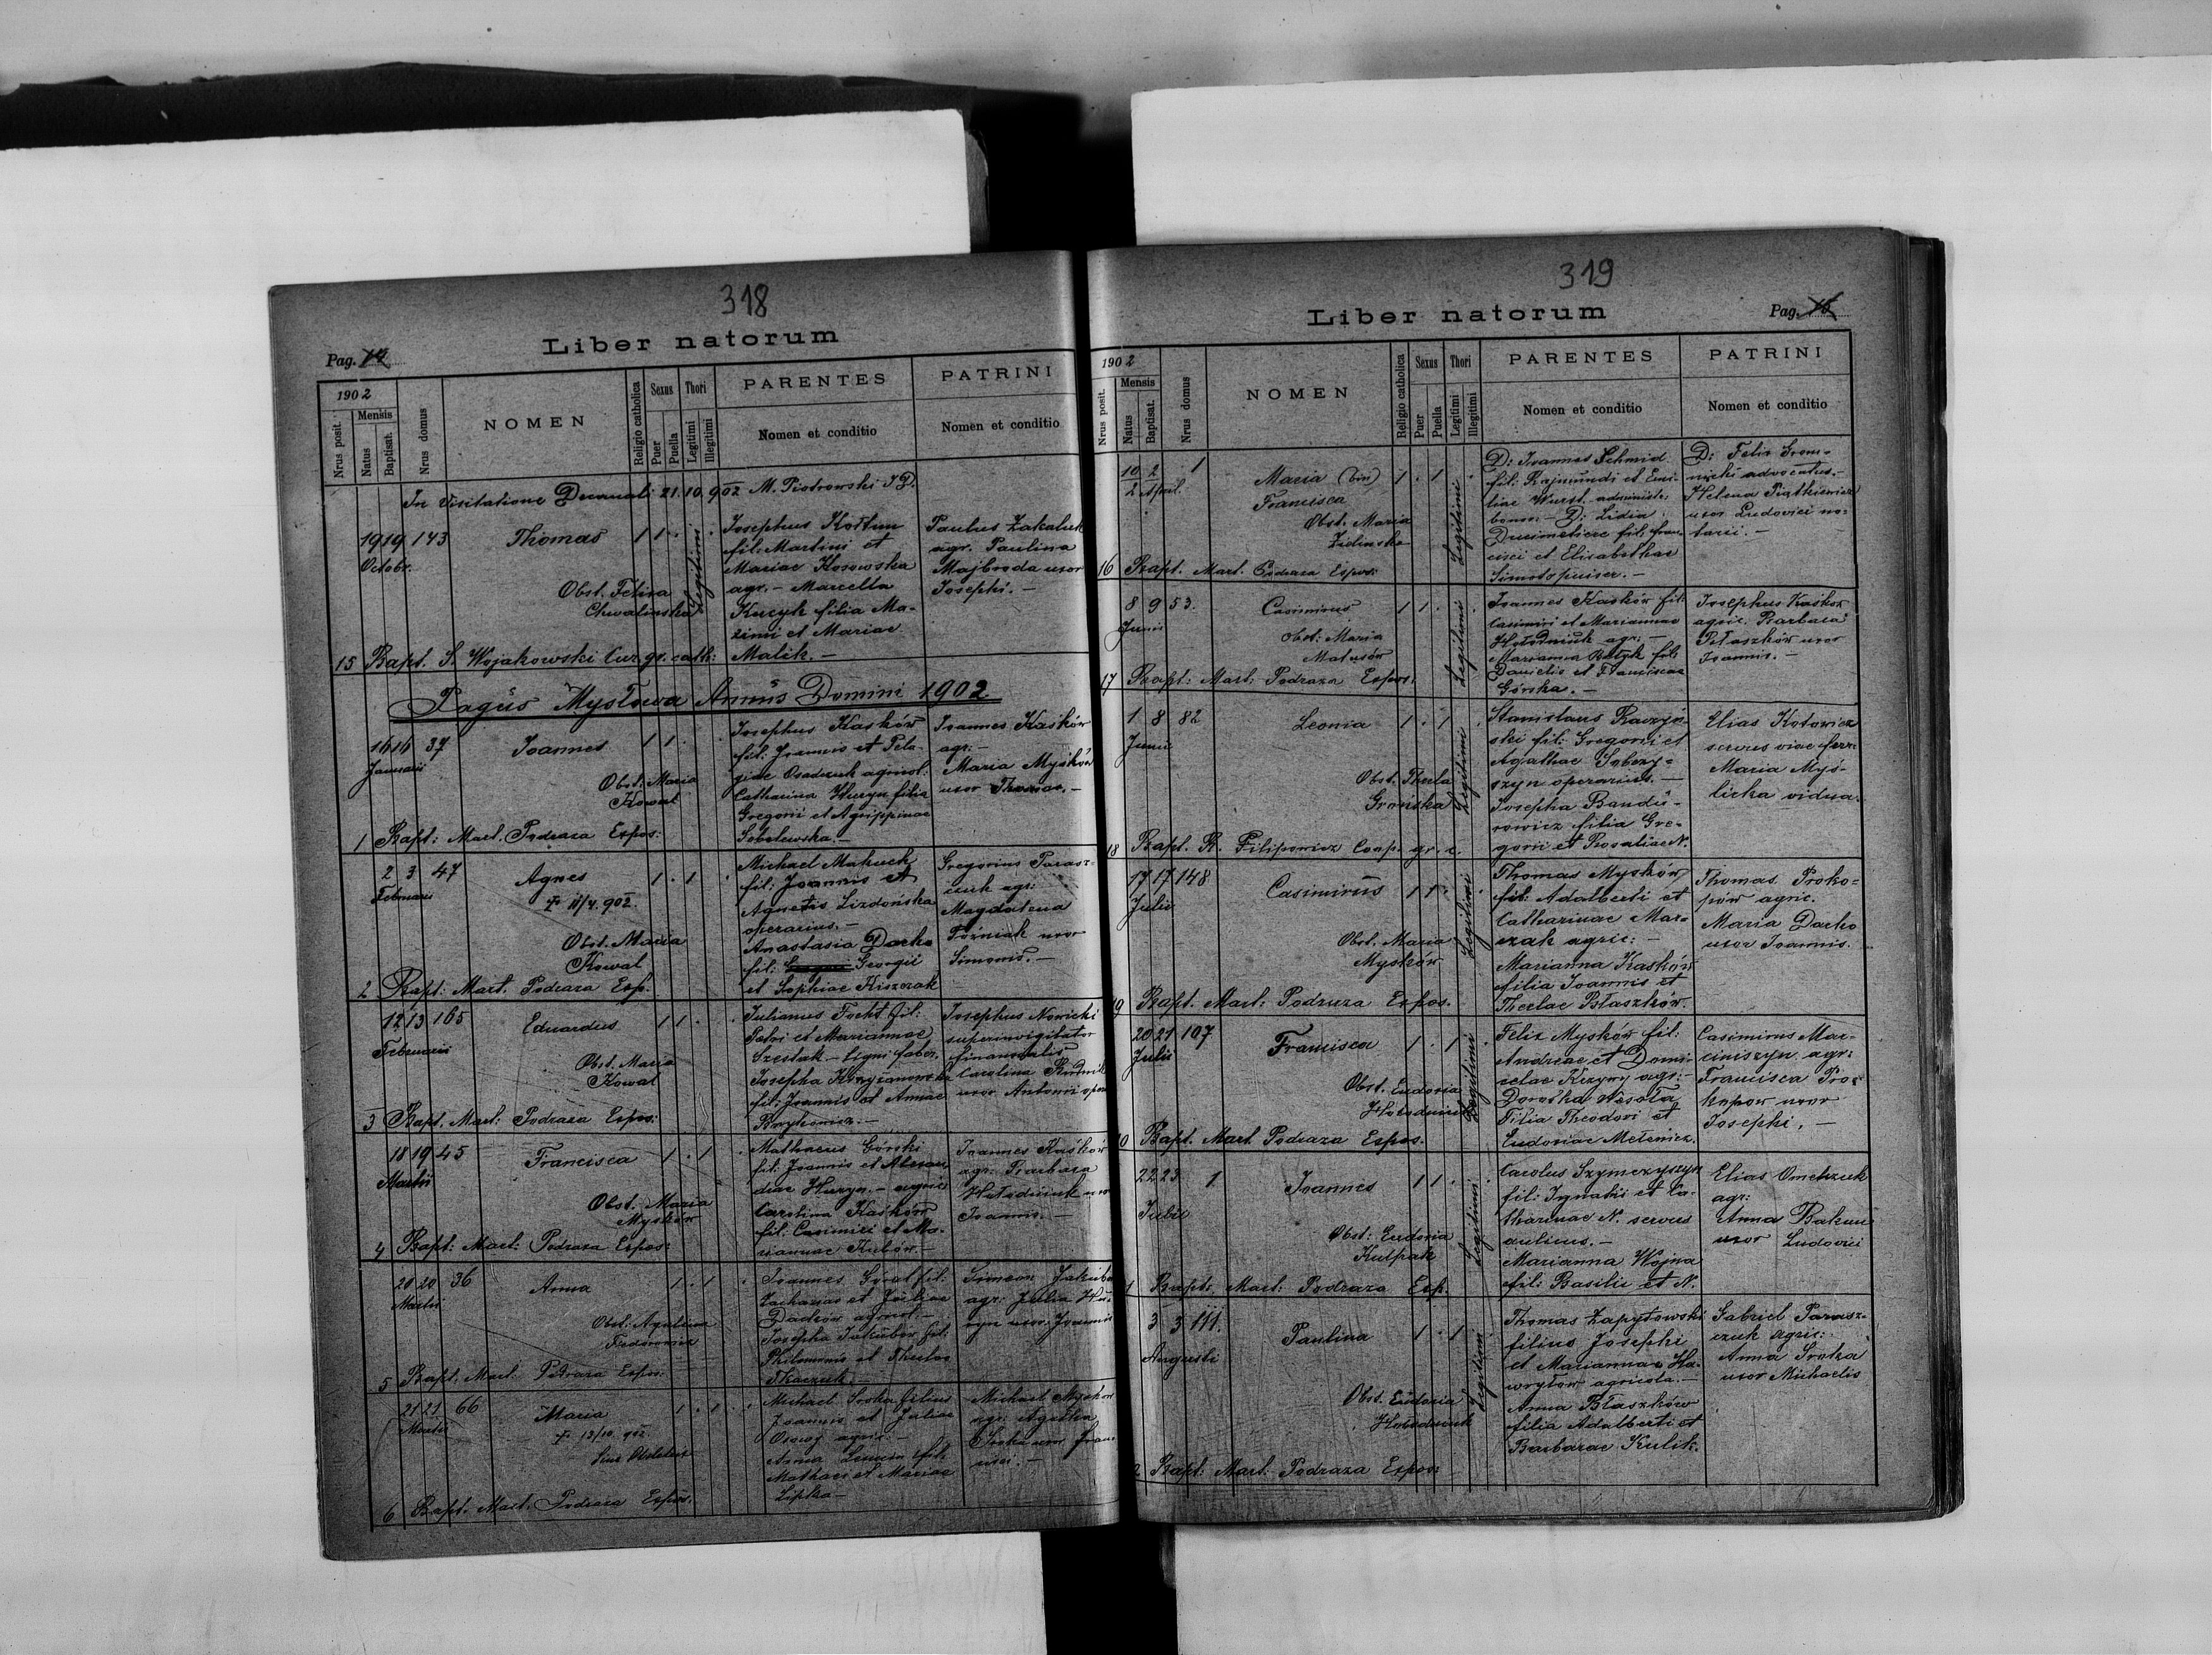 318
Liber natorum
Pag.
1902
Nrus posit.
Mensis
Natus
Baptisat.
Nrus domus
NOMEN
Religio catholica
Sexus
Puer
Puella
Thori
Legitimi
Illegitimi
PARENTES
Nomen et conditio
PATRINI
Nomen et conditio
In Visitatione Decanali 21.10.902 M. Piotrowski
19 19 143
Octobr.
Thomas
1 1
Legitimi
Obst. Felixa
Chwalinska
Josephus
fil: Martini et
Mariae Kosowska
agr. - Marcella
Kuczyk filia Ma-
et Mariae
Malik. -
Paulus Zakaluk
agr. Paulina
Majbroda uxor
Josephi. -
15 Bapt. S. Wojakowski Cur. gr. cath:
Pagus Mystowa Annus Domini 1902
16 16 37
Januarii
Joannes
1 1
Obst: Maria
Kowal
Josephus Kaskow
fil: Joannis et Pela-
giae Osadczuk agricol:
Catharina Huzyn filia
Gregorii et Agrippinae
Sobolewska. -
Joannes Kaśków
agr: -
Maria Myśków
uxor Thomae. -
1 Bapt: Mart. Podraza Expos:
2 3 47
Februarii
Agnes
† 11/4. 902.
1 1
Obst. Maria
Kowal
Michael Makuch
fil: Joannis et
Agnetis Lizdońska
operarius. -
Anastasia Dacko
fil: Georgii
et Sophiae
Gregorius Parasz-
czuk agr:
Magdalena
uxor
Simonis. -
2 Bapt: Mart. Podraza Exp.
12 13 165
Februarii
Eduardus
1 1
Obst. Maria
Kowal
Julianus Focht fil:
Petri et Mariannae
Szestak - ligni faber.
Josepha
fil: Joannis et Annae
Josephus Nowicki
superinvigilator
finantialis
Carolina
uxor Antonii
3 Bapt. Mart: Podraza Expos:
18 19 45
Martii
Francisca
1 1
Obst: Maria
Myśków
Mathaeus Górski
fil: Joannis et
Huzyn. - agric
Carolina Kaśków
fil: Casimiri et Ma-
riannae Kubów. -
Joannes Kaśków
agr: Barbara
Joannis. -
4 Bapt: Mart: Podraza Expos:
20 20 36
Martii
Anna
1 1
Obst:
Joannes Góral fil:
Zachariae et Juliae
agricol. -
Josepha Jakubow fil:
Philomonis et Theclae
Tkaczuk
Simeon
agr: Julia
uxor Joannis
5 Bapt. Mart: Podraza Expos:
21 21 66
Martii
Maria
† 13/10. 902
Sine Obstetrice
Michael Sroka filius
Joannis et Juliae
agric: -
Anna fil:
Mathaei et Mariae
Lipka -
Michael Myśków
agr: Agatha
Sroka uxor
6 Bapt. Mart. Podraza Expos.
319
Liber natorum
Pag.
1902
Nrus posit.
Mensis
Natus
Baptisat.
Nrus domus
NOMEN
Religio catholica
Sexus
Puer
Puella
Thori
Legitimi
Illegitimi
PARENTES
Nomen et conditio
PATRINI
Nomen et conditio
10 2 1
2 April.
Maria (bin)
Francisca
1 1
Legitimi
Obst. Maria
Zielinska
D: Joannes Schmid
fil: Rajmundi et Emi-
liae Wurst. administr:
bonor: - D: Lidia
fil: Fran-
cisci et Elisabethae
D: Felix
advocatus. -
Helena Piątkiewicz
uxor Ludovici no-
tarii. -
16 Bapt. Mart. Podraza Expos:
8 9 53.
Junii
Casimirus
1 1
Legitimi
Obst: Maria
Matusów
Joannes Kaśków fil:
Casimiri et Mariannae
Hołodniuk agr: -
Marianna fil:
Danielis et Franciscae
Górska. -
Josephus Kaśków
agric. Barbara
Ptaszków uxor
Joannis. -
17 Bapt: Mart: Podraza Expos:
1 8 82
Junii
Leonia
1 1
Legitimi
Obst. Thecla
Grońska
Stanislaus Raczyń-
ski fil: Gregorii et
Agathae
operarius. -
Josepha Bandu-
rowicz filia Gre-
gorii et Rosaliae N.
Elias Kotowicz
servus viae ferr:
Maria Myś-
licka vidua.
18 Bapt. R. Filipowicz Coop. gr. c.
17 17 148
Julii
Casimirus
1 1
Legitimi
Obst. Maria
Myskow
Thomas Myśków
fil: Adalberti et
Catharinae Mar-
czak agric: -
Marianna Kaśków
filia Joannis et
Theclae Błaszków.
Thomas Proko-
pów agric.
Maria Dacko
uxor Joannis.
19 Bapt. Mart: Podraza Expos.
20 21 107
Julii
Francisca
1 1
Legitimi
Obst. Eudoxia
Felix Myśków fil:
Andreae et Domi-
celae agr: -
Dorothea Wesoła
Filia Theodori et
Eudoxiae
Casimirus Mar-
ciniszyn agr:
Francisca Pro-
kopow uxor
Josephi. -
Bapt. Mart. Podraza Expos.
22 23 1
Julii
Joannes
1 1
Legitimi
Obst: Eudoxia
Kulpak
Carolus Szymczyszyn
fil: Ignatii et Ca-
tharinae N. servus
aulicus. -
Marianna Wojna
fil: Basilii et N.
Elias Omelczuk
agr:
Anna Bakun
uxor Ludovici
Bapt: Mart: Podraza Exp.
3 3 111.
Augusti
Paulina
1 1
Legitimi
Obst. Eudoxia
Hołodniuk
Thomas Zapytowski
filius Josephi
et Mariannae Ha-
wryłów agricola. -
Anna Błaszków
filia Adalberti et
Barbarae Kulik.
Gabriel Parasz-
czuk agric:
Anna Sroka
uxor Michaelis
Bapt: Mart: Podraza Expos: